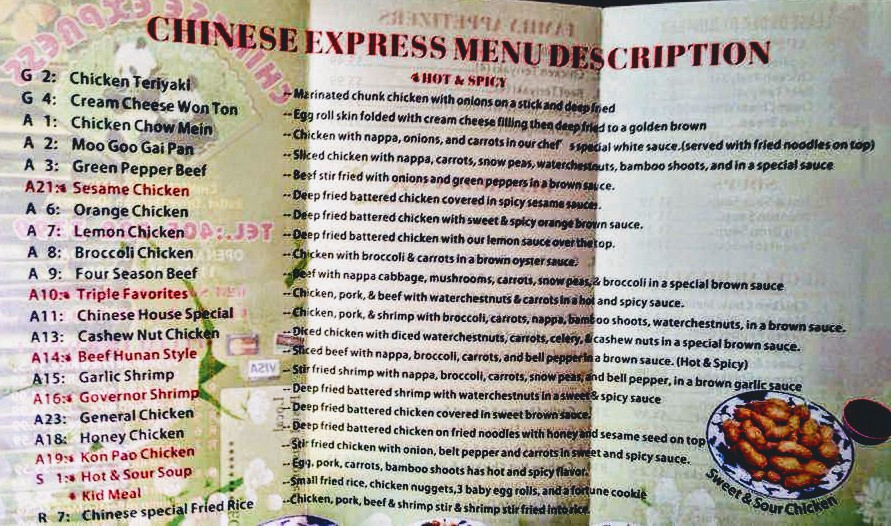 CHINESE EXPRESS MENU DESCRIPTION
HOT & SPICY
G 2: Chicken Teriyaki --Marinated chunk chicken with onions on a stick and deep fried
G 4: Cream Cheese Won Ton --Egg roll skin folded with cream cheese filling then deep fried to a golden brown
A 1: Chicken Chow Mein --Chicken with nappa, onions, and carrots in our chef's special white sauce.(served with fried noodles on top)
A 2: Moo Goo Gai Pan --Sliced chicken with nappa, carrots, snow peas, waterchestnuts, bamboo shoots, and in a special sauce
A 3: Green Pepper Beef --Beef stir fried with onions and green peppers in a brown sauce.
A21: Sesame Chicken --Deep fried battered chicken covered in spicy sesame sauce.
A 6: Orange Chicken --Deep fried battered chicken with sweet & spicy orange brown sauce.
A 7: Lemon Chicken --Deep fried battered chicken with our lemon sauce over the top.
A 8: Broccoli Chicken --Chicken with broccoli & carrots in a brown oyster sauce.
A 9: Four Season Beef --Beef with nappa cabbage, mushrooms, carrots, snow peas, & broccoli in a special brown sauce
A10: Triple Favorites --Chicken, pork, & beef with waterchestnuts & carrots in a hot and spicy sauce.
A11: Chinese House Special --Chicken, pork, & shrimp with broccoli, carrots, nappa, bamboo shoots, waterchestnuts, in a brown sauce.
A13: Cashew Nut Chicken --Diced chicken with diced waterchestnuts, carrots, celery, & cashew nuts in a special brown sauce.
A14: Beef Hunan Style --Sliced beef with nappa, broccoli, carrots, and bell pepper in a brown sauce. (Hot & Spicy)
A15: Garlic Shrimp --Stir fried shrimp with nappa, broccoli, carrots, snow peas, and bell pepper, in a brown garlic sauce
A16: Governor Shrimp --Deep fried battered shrimp with waterchestnuts in a sweet & spicy sauce
A23: General Chicken --Deep fried battered chicken covered in sweet brown sauce.
A18: Honey Chicken --Deep fried battered chicken on fried noodles with honey and sesame seed on top
A19: Kon Pao Chicken --Stir fried chicken with onion, belt pepper and carrots in sweet and spicy sauce.
S 1: Hot & Sour Soup --Egg, pork, carrots, bamboo shoots has hot and spicy flavor.
Kid Meal --Small fried rice, chicken nuggets,3 baby egg rolls, and a fortune cookie
R 7: Chinese special Fried Rice --Chicken, pork, beef & shrimp stir & shrimp stir fried into rice.
Sweet & Sour Chicken